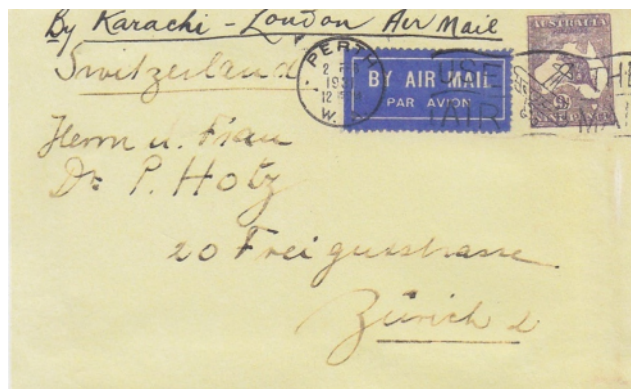 By Karachi - London Air Mail
Switzerland
PERTH
2 FEB
193
12
W. A.
BY AIR MAIL
PAR AVION
USE
AIR
THE
MAI
AUSTRALIA
9
Herrn u. Frau
Dr P. Hotz
20 Freigutstrasse
Zürich 2